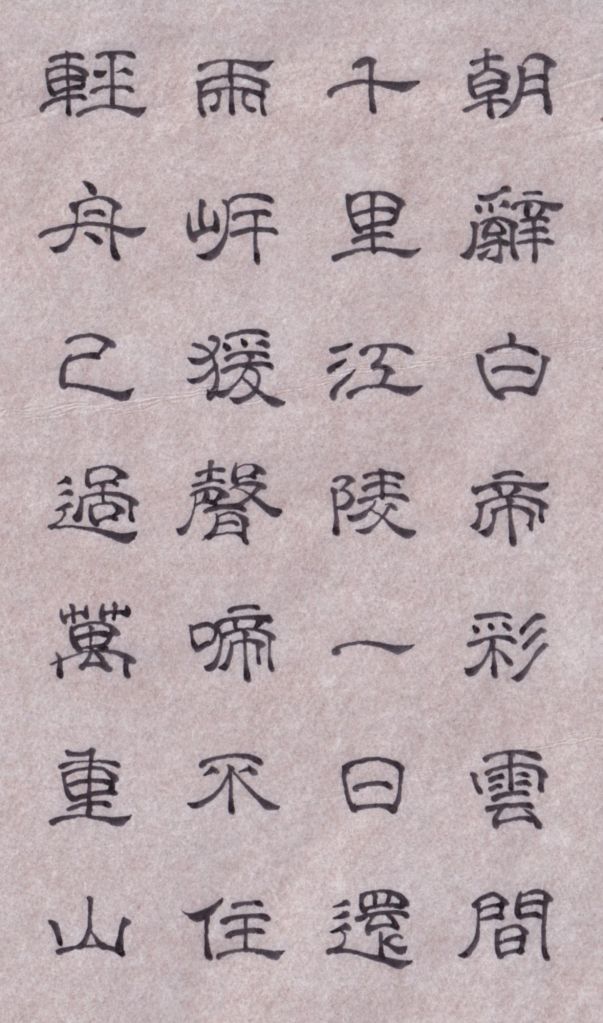 朝辭白帝彩雲間
千里江陵一日還
兩岸猨聲啼不住
輕舟已過萬重山